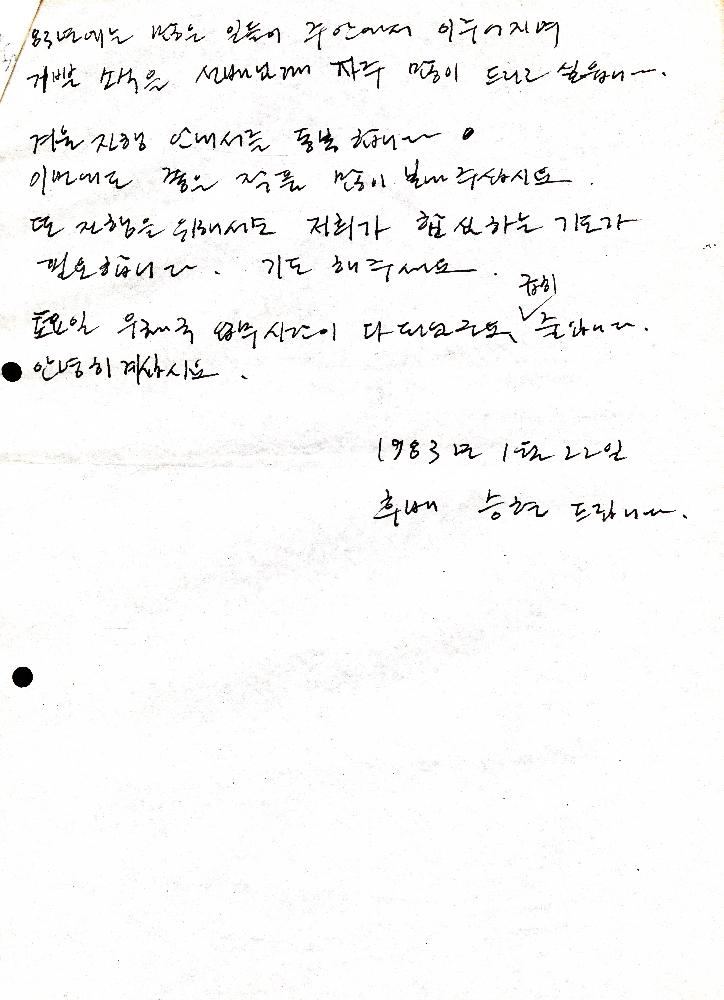 83년에는 많은 일들이 주안에서 이루어지며
소식을 선배님께 자주 많이 드리고 싶읍니다.
겨울 진행 안내서를 동봉 합니다
이번에도 좋은 작품 많이 보내 주십시요.
또 진행을 위해서도 저희가 합심하는 기도가
필요합니다. 기도 해주세요.
급히
토요일 우체국 업무시간이 다 되었고요, 줄입니다.
안녕히 계십시요.
1983년 1월 22일
후배 승현 드립니다.